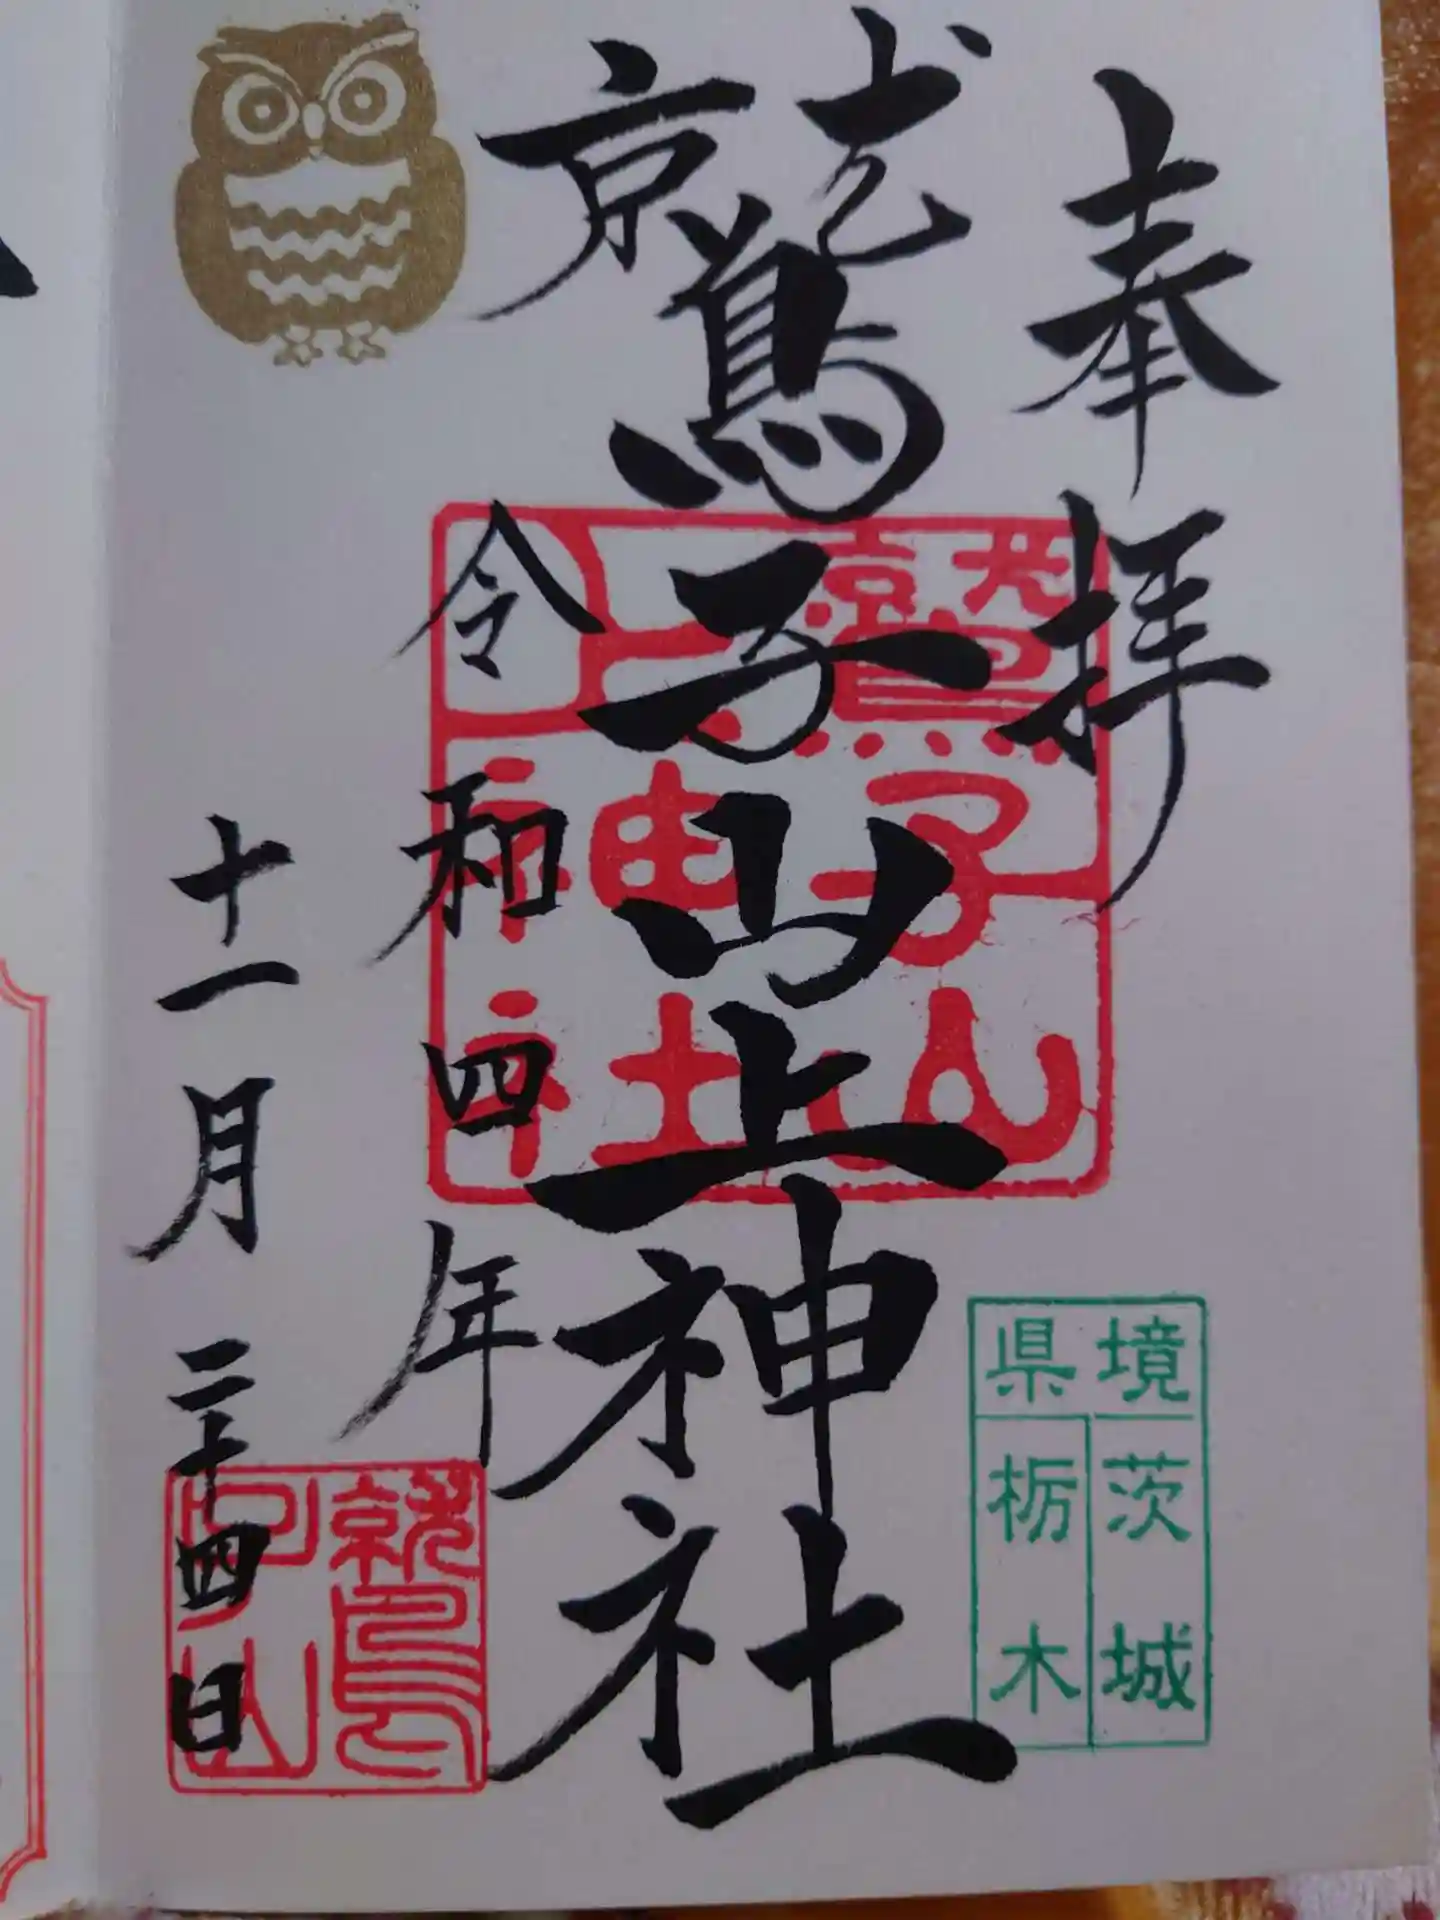 奉拝
鷲子山上神社
令和四年
十一月二十四日
鷲子山
上神社
県境
茨城
栃木
鷲子山